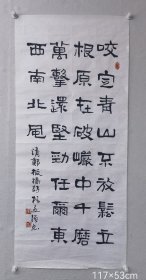 咬定青山不放鬆立
根原在破巖中千磨
萬擊還堅勁任爾東
西南北風
清鄭板橋詩
117×53cm